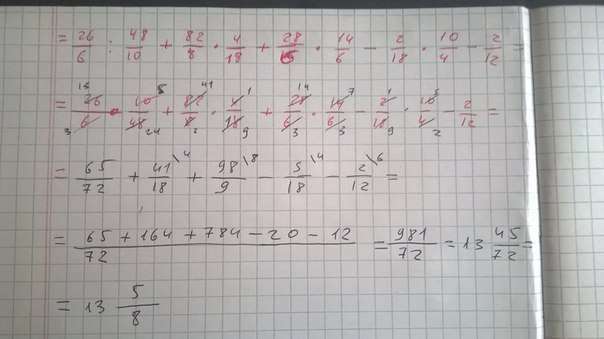 = 26/6 : 48/10 + 82/8 · 4/18 + 28/6 · 14/6 − 2/18 · 10/4 − 2/12 =
= 26/6 · 10/48 + 82/8 · 4/18 + 28/6 · 14/6 − 2/18 · 10/4 − 2/12 =
= 65/72 + 41/18 \4 + 98/9 \8 − 5/18 \4 − 2/12 \6 =
= 65 + 164 + 784 − 20 − 12 / 72 = 981/72 = 13 45/72 =
= 13 5/8